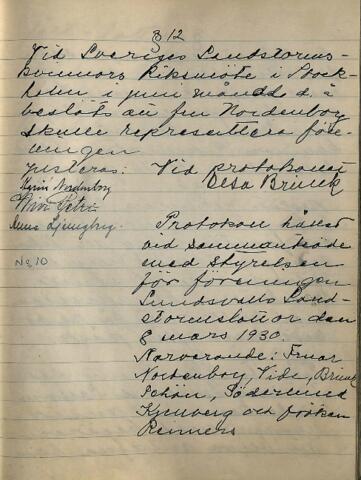 § 12
Vid Sveriges Landstorms-
kvinnors Riksmöte i Stock-
holm i juni månad d. å
beslöts att fru Nordenboy
skulle representera före-
ningen
Justeras: Vid protokollet
Elsa Brunck
Nordenborg
Petri
Anna Ljungberg.
No 10
Protokoll hållet
vid sammanträde
med styrelsen
för föreningen
Sundsvalls Land-
stormslottor den
8 mars 1930.
Närvarande: Fruar
Nordenborg, Vide, Brunck
Schön, Söderlund
och fröken
Renners